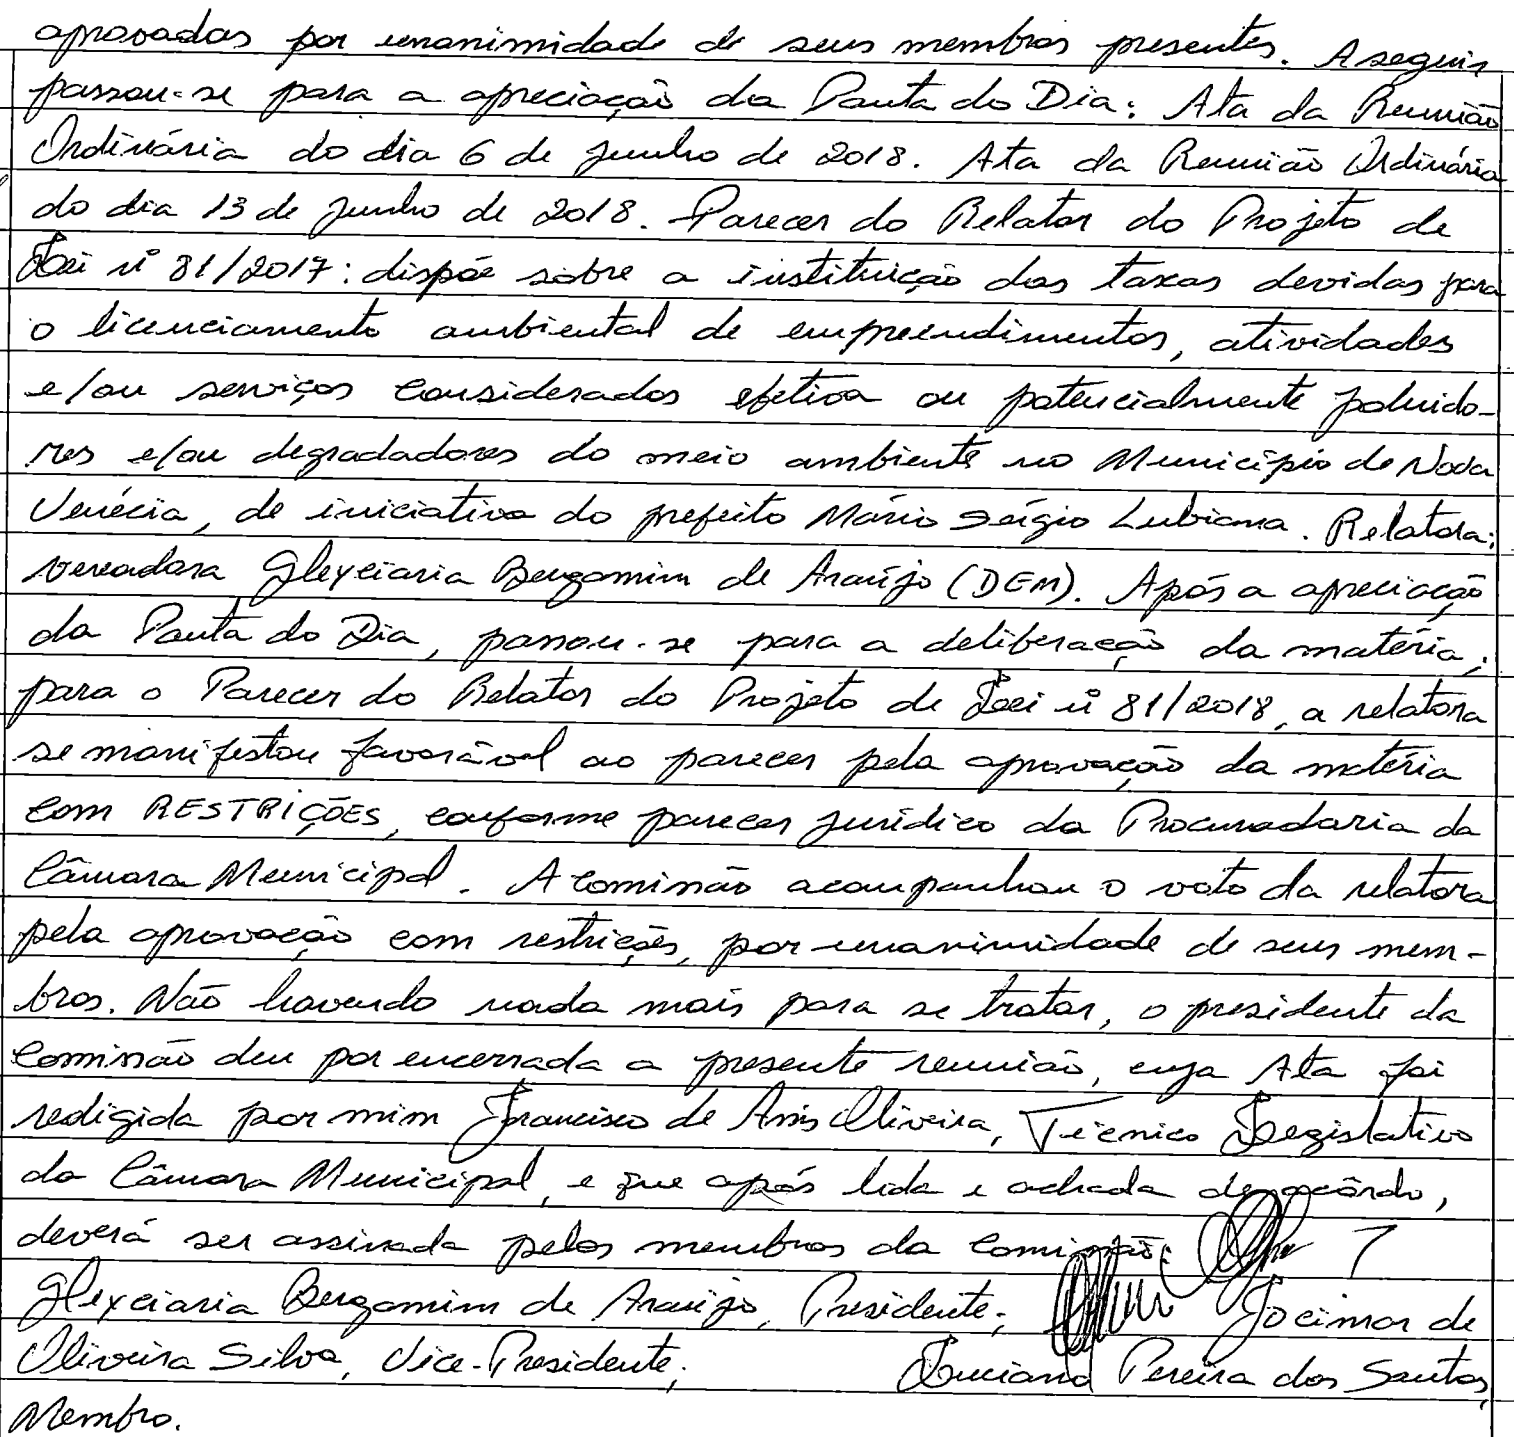 aprovadas por unanimidade de seus membros presentes. A seguir
passou-se para a apreciação da Pauta do Dia: Ata da Reunião
Ordinária do dia 6 de junho de 2018. Ata da Reunião Ordinária
do dia 13 de junho de 2018. Parecer do Relator do Projeto de
Lei nº 81/2017: dispõe sobre a instituição das taxas devidas para
o licenciamento ambiental de empreendimentos, atividades
e/ou serviços considerados efetiva ou potencialmente poluido-
res e/ou degradadores do meio ambiente no Município de Nova
Venécia, de iniciativa do prefeito Mário Sérgio Lubiana. Relatora:
vereadora Gleyciaria Bergamim de Araújo (DEM). Após a apreciação
da Pauta do Dia, passou-se para a deliberação da matéria;
para o Parecer do Relator do Projeto de Lei nº 81/2018, a relatora
se manifestou favorável ao parecer pela aprovação da matéria
com RESTRIÇÕES, conforme parecer jurídico da Procuradoria da
Câmara Municipal. A Comissão acompanhou o voto da relatora
pela aprovação com restrições, por unanimidade de seus mem-
bros. Não havendo nada mais para se tratar, o presidente da
Comissão deu por encerrada a presente reunião, cuja Ata foi
redigida por mim Francisco de Assis Oliveira, Técnico Legislativo
da Câmara Municipal, e que após lida e achada de acôrdo,
deverá ser assinada pelos membros da Comissão:
Gleyciaria Bergamim de Araújo, Presidente; Jocimar de
Oliveira Silva, Vice-Presidente; Luciano Pereira dos Santos,
Membro.